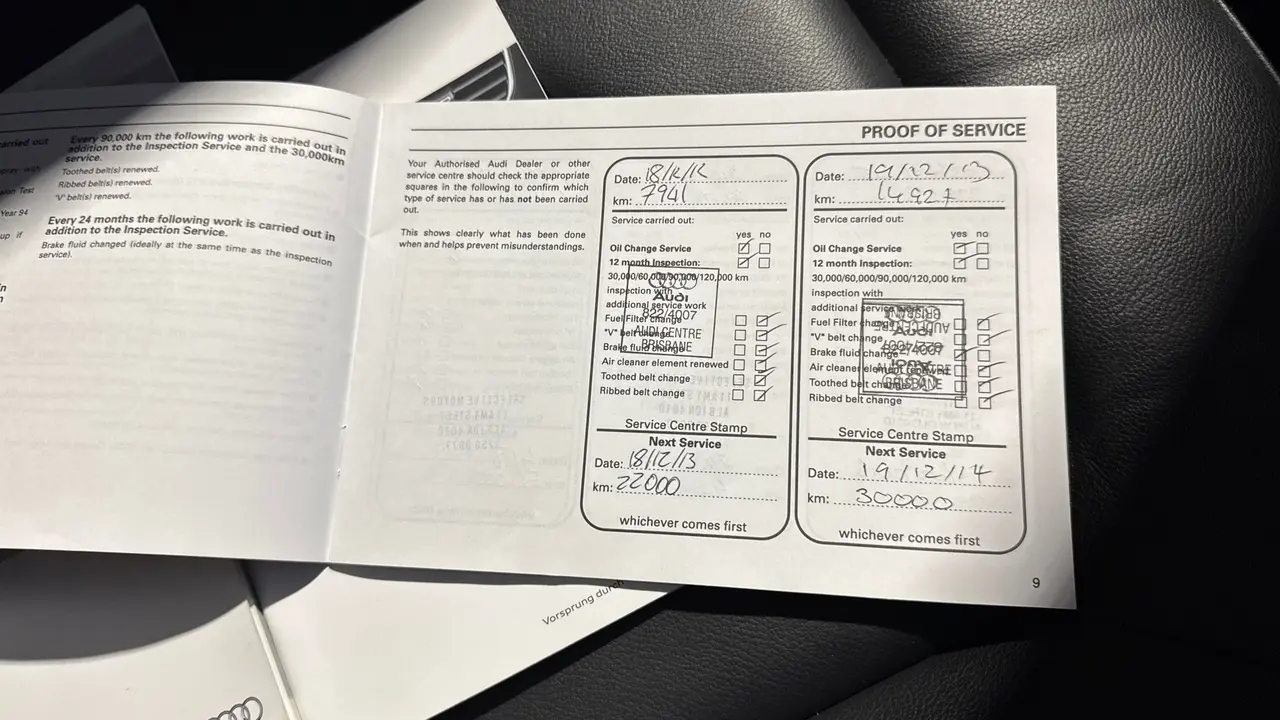 arried out
Every 90,000 km the following work is carried out in
addition to the Inspection Service and the 30,000km
service.
Toothed belt(s) renewed.
Ribbed belt(s) renewed.
"V" belt(s) renewed.
Year 94
Every 24 months the following work is carried out in
addition to the Inspection Service.
up if
Brake fluid changed (ideally at the same time as the inspection
service).
PROOF OF SERVICE
Your Authorised Audi Dealer or other
service centre should check the appropriate
squares in the following to confirm which
type of service has or has not been carried
out.
This shows clearly what has been done
when and helps prevent misunderstandings.
Date: 18/12/12
km: 7941
Service carried out:
yes no
Oil Change Service
12 month Inspection:
30,000/60,000/90,000/120,000 km
inspection with
additional service work
Fuel Filter change
"V" belt change
Brake fluid change
Air cleaner element renewed
Toothed belt change
Ribbed belt change
Audi
822/4007
AUDI CENTRE
BRISBANE
Service Centre Stamp
Next Service
Date: 18/12/13
km: 22000
whichever comes first
Date: 19/12/13
km: 14927
Service carried out:
yes no
Oil Change Service
12 month Inspection:
30,000/60,000/90,000/120,000 km
inspection with
additional service work
Fuel Filter change
"V" belt change
Brake fluid change
Air cleaner element renewed
Toothed belt change
Ribbed belt change
Service Centre Stamp
Next Service
Date: 19/12/14
km: 30000
whichever comes first
9
Vorsprung durch